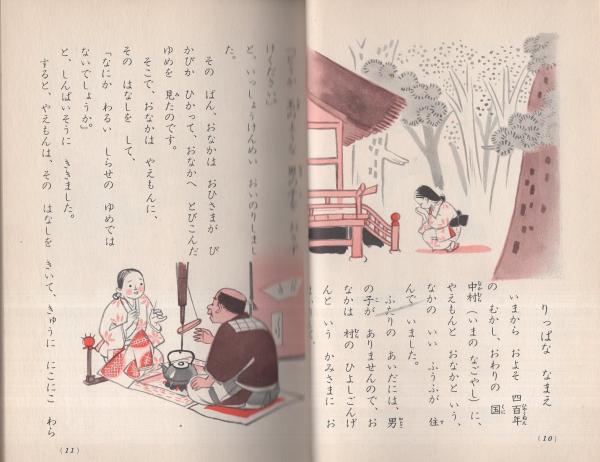 りっぱな なまえ
いまから およそ 四百年
の むかし、おわりの 国
中村(いまの なごやし)に、
やえもんと おなかと いう、
なかの いい ふうふが 住
んで いました。
ふたりの あいだには、男
の子が ありませんので、お
なかは 村の ひよしごんげ
んと いう かみさまに お
(10)
けください。」
と、いっしょうけんめい おいのりしまし
た。
その ばん、おなかは おひさまが ぴ
かぴか ひかって、おなかへ とびこんだ
ゆめを 見たのです。
そこで、おなかは やえもんに、
その はなしを して、
「なにか わるい しらせの ゆめでは
ないでしょうか。」
と、しんぱいそうに ききました。
すると、やえもんは、その はなしを きいて、きゅうに にこにこ わら
(11)